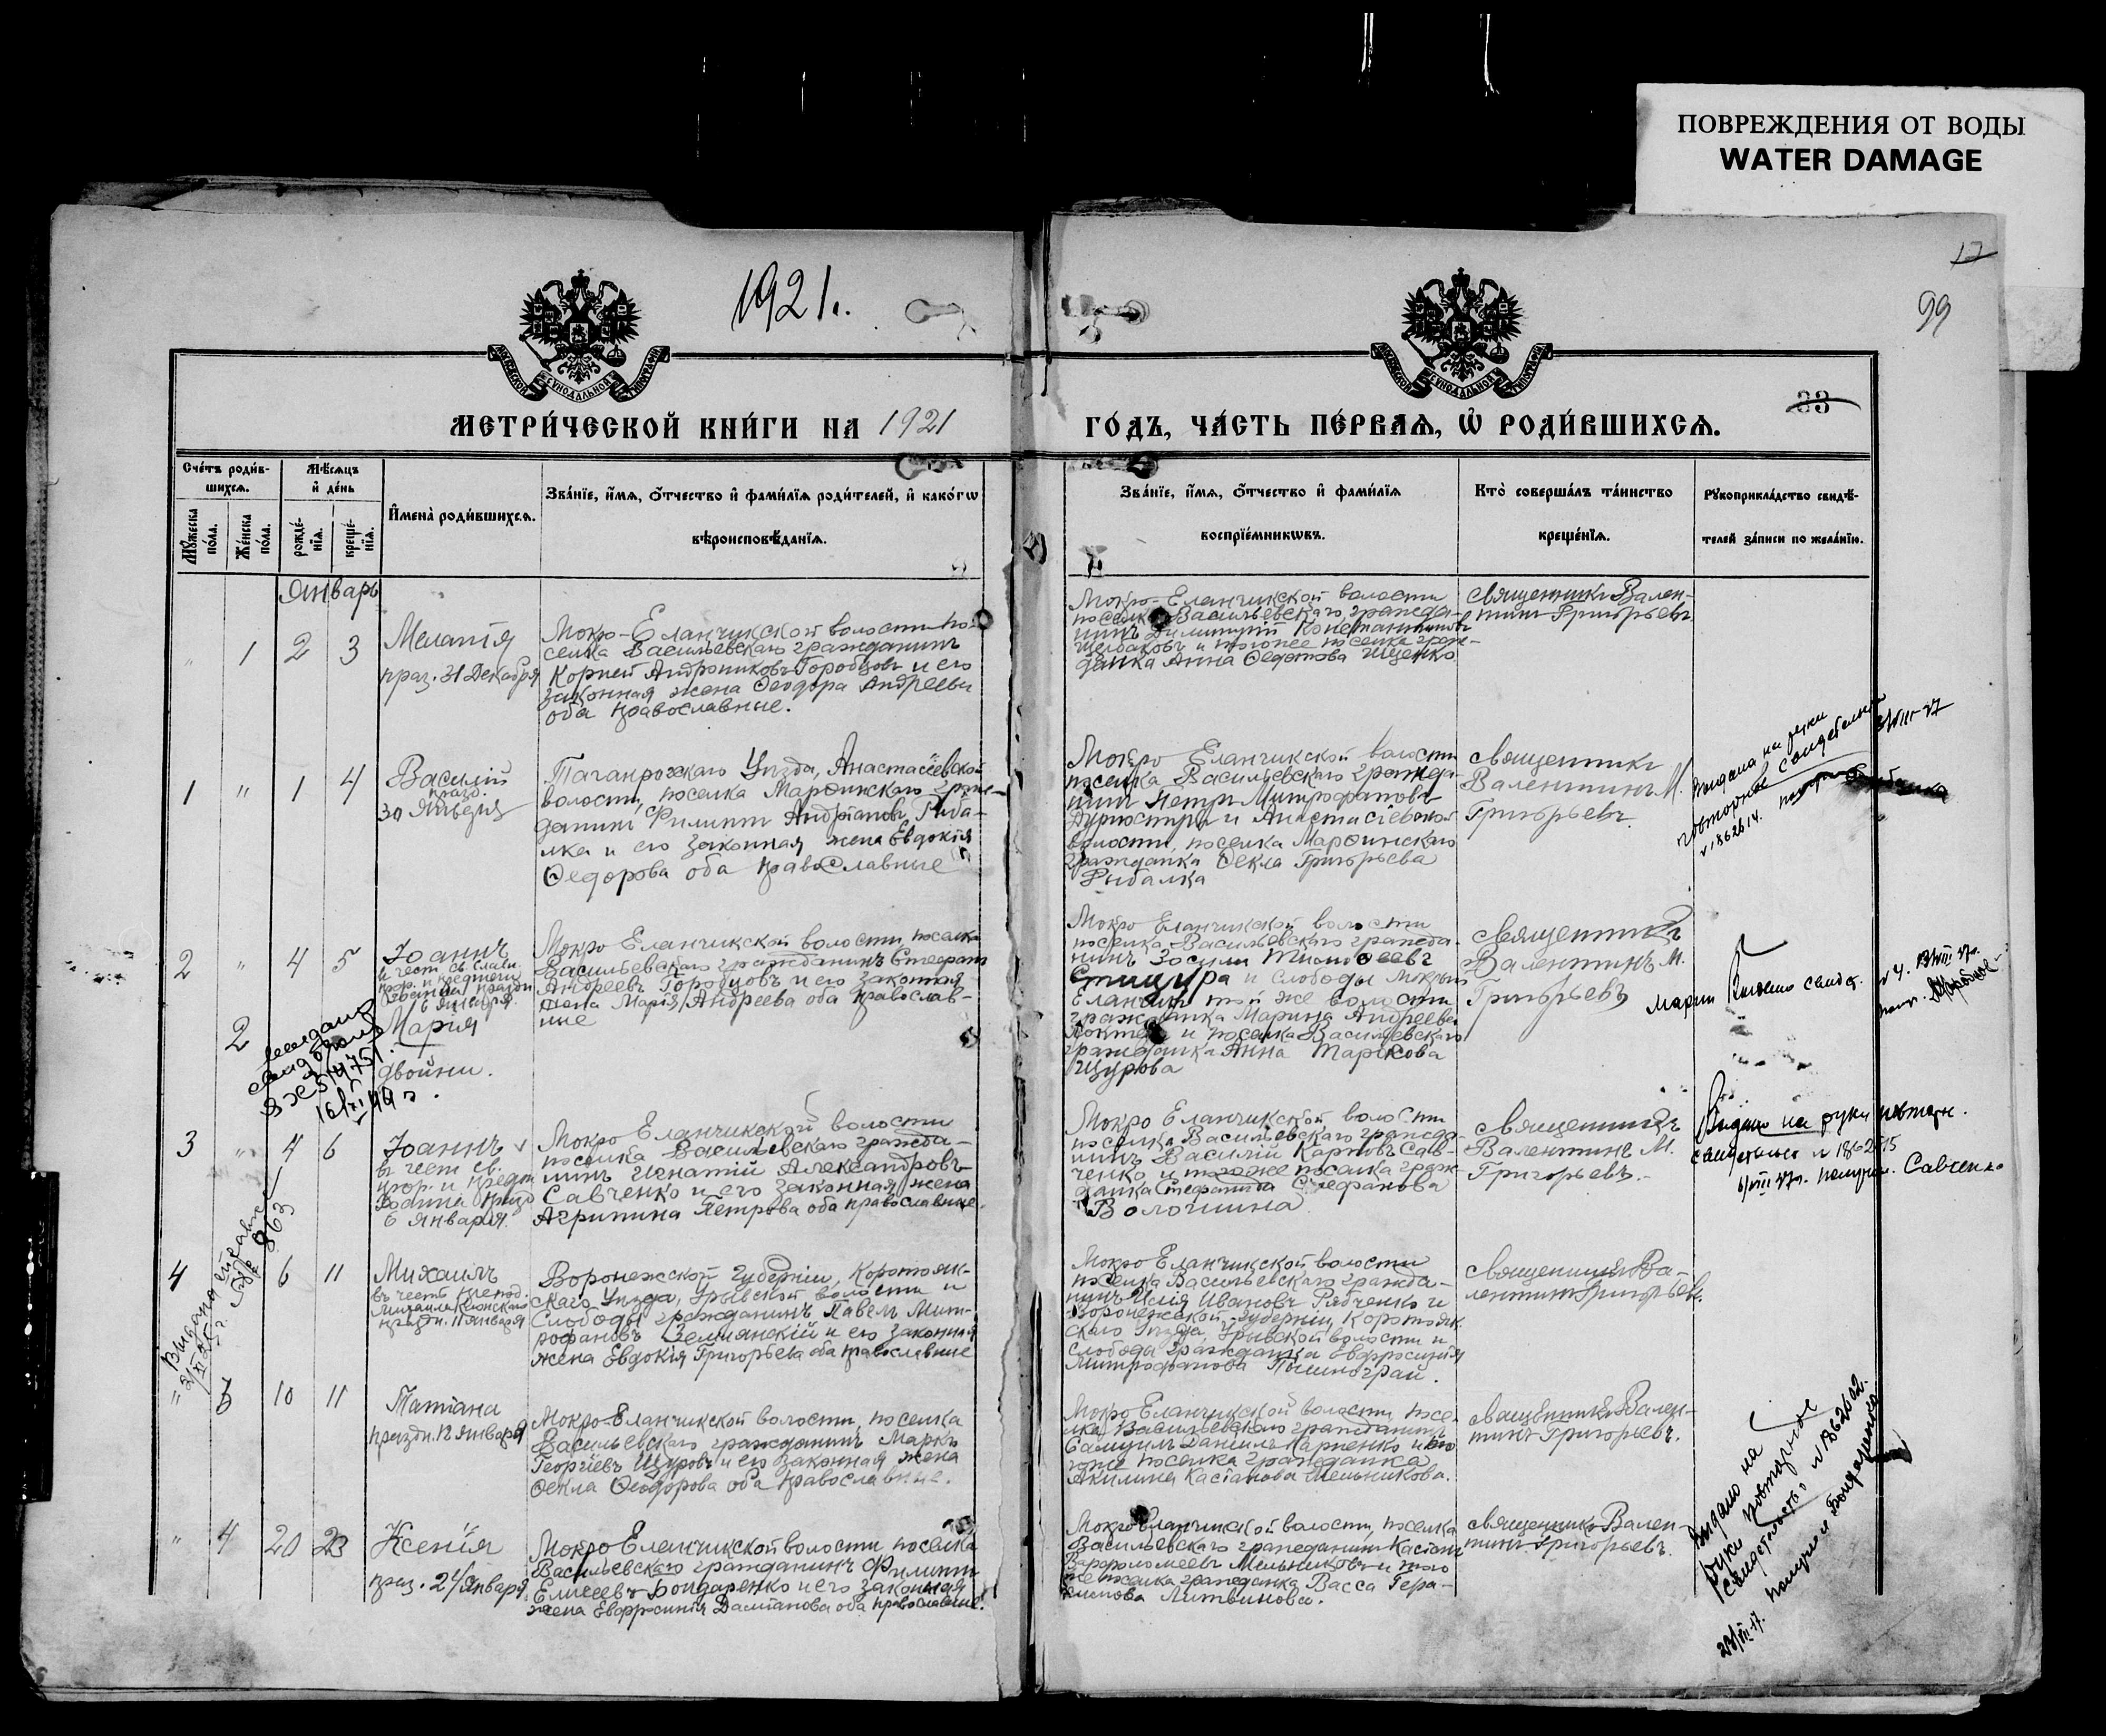 ПОВРЕЖДЕНИЯ ОТ ВОДЫ
WATER DAMAGE
17
99
1921.
МОСКОВСКОЙ СѴНОДАЛЬНОЙ ТИПОГРАФІИ
МОСКОВСКОЙ СѴНОДАЛЬНОЙ ТИПОГРАФІИ
33
МЕТРИ́ЧЕСКОЙ КНИ́ГИ НА 1921
ГО́ДЪ, ЧА́СТЬ ПЕ́РВАѦ, Ѡ҆ РОДИ́ВШИХСѦ.
Сче́тъ роди́в-
шихсѧ.
Мꙋ́жеска по́ла.
Же́нска по́ла.
Мѣ́сѧцъ
и҆ де́нь
рожде́-
нїѧ.
креще́-
нїѧ.
И҆мена̀ роди́вшихсѧ.
Зва́нїе, и҆́мѧ, ѻ҆́тчество и҆ фами́лїѧ роди́телей, и҆ како́гѡ
вѣроисповѣ́данїѧ.
Зва́нїе, и҆́мѧ, ѻ҆́тчество и҆ фами́лїѧ
воспрїе́мникѡвъ.
Кто̀ соверша́лъ та́инство
креще́нїѧ.
Рꙋкоприкла́дство свидѣ́-
телей за́писи по жела́нїю.
Январь
" 1 2 3
Меланія
праз. 31 Декабря
Мокро-Еланчикской волости по-
селка Васильевскаго гражданинъ
Корней Андрониковъ Горобцовъ и его
законная жена Ѳеодора Андреевы
оба православные.
Мокро-Еланчикской волости
поселка Васильевскаго гражда-
нинъ Димитрій Константиновъ
Щербаковъ и тогоже поселка граж-
данка Анна Федотова Ищенко
Священникъ Вален-
тинъ Григорьевъ
1 " 1 4
Василій
празд.
30 Января
Таганрожскаго Уѣзда, Анастасіевской
волости, поселка Марфинскаго граж-
данинъ Филиппъ Андріановъ Рыба-
лка и его законная жена Евдокія
Ѳедорова оба православные
Мокро Еланчикской волости
поселка Васильевскаго гражда-
нинъ Петръ Митрофановъ
и Анастасіевской
волости, поселка Марфинскаго
гражданка Ѳекла Григорьева
Рыбалка
Священникъ
Валентинъ М.
Григорьевъ
Выдана на руки
повторное свидетельство
№ 1862614.
3/VIII-47
2 " 4 5
Іоаннъ
въ чест. св. слав.
прор. и Предтечи
Іоанна праздн
6 Января.
2
Мария
двойни.
Мокро Еланчикской волости, поселка
Васильевскаго гражданинъ Стефанъ
Андреевъ Городцовъ и его законная
жена Марія Андреева оба православ-
ные
Мокро Еланчикской волости
поселка Васильевскаго гражда-
нинъ Зосима Тимофеевъ
и слободы Мокрый
Еланчикъ той же волости
гражданка Марина Андреева
и поселка Васильевскаго
гражданка Анна Тарасова
Щурова
Священникъ
Валентинъ М.
Григорьевъ
Выдано
3 " 4 6
Іоаннъ
въ чест св.
прор. и Предт
Іоанна празд
6 Января.
Мокро Еланчикской волости
поселка Васильевскаго гражда-
нинъ Игнатій Александровъ
Савченко и его законная жена
Агрипина Петрова оба православные.
Мокро Еланчикской волости
поселка Васильевскаго гражда-
нинъ Василій Карповъ Сав-
ченко и тогоже поселка граж-
данка Стефанида Стефанова
Волошина
Священникъ
Валентинъ М.
Григорьевъ.
Выдано на руки повторн.
свидетельст № 1862615
6/VIII 47г. получил. Савченко
4 6 11
Михаилъ
въ честь препод.
Михаила Клопскаго
праздн. 11 Января
Воронежской Губерніи, Коротояк-
скаго Уѣзда, Урывской волости и
Слободы гражданинъ Павелъ Мит-
рофановъ Землянскій и его законная
жена Евдокія Григорьева оба православные
Мокро Еланчикской волости
поселка Васильевскаго гражда-
нинъ Илія Ивановъ Рябченко и
Воронежской Губерніи, Коротояк-
скаго Уѣзда, Урывской волости и
слободы гражданка Евфросинія
Митрофанова
Священникъ Ва-
лентинъ Григорьевъ.
" 3 10 11
Татіана
праздн. 12 Января
Мокро-Еланчикской волости, поселка
Васильевскаго гражданинъ Маркъ
Георгіевъ Щуровъ и его законная жена
Ѳекла Ѳеодорова оба православные.
Мокро Еланчикской волости, посел-
ка Васильевскаго гражданинъ
Самуилъ Даніилъ Карпенко и его
тоже поселка гражданка
Акилина Касіанова Мельникова.
Священникъ Вален-
тинъ Григорьевъ.
" 4 20 23
Ксенія
праз. 24 Января.
Мокро Еланчикской волости поселка
Васильевскаго гражданинъ Филиппъ
Елисеевъ Бондаренко и его законная
жена Евфросинія Даміанова оба православные.
Мокро Еланчикской волости, поселка
Васильевскаго гражданинъ Касіанъ
Варфоломеевъ Мельниковъ и того
же поселка гражданка Васса Гера-
симова Литвинова.
Священникъ Вален-
тинъ Григорьевъ.
Выдано на
руки повторное
свидетельство № 1862602.
23/VIII-47. получил Бондаренко